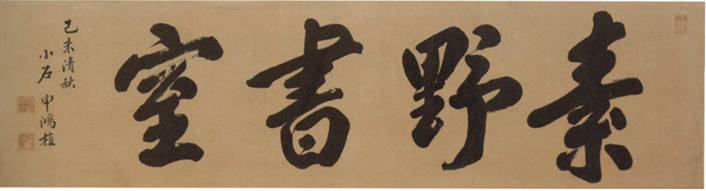 素野書室
己未清秋
小石 申鴻植